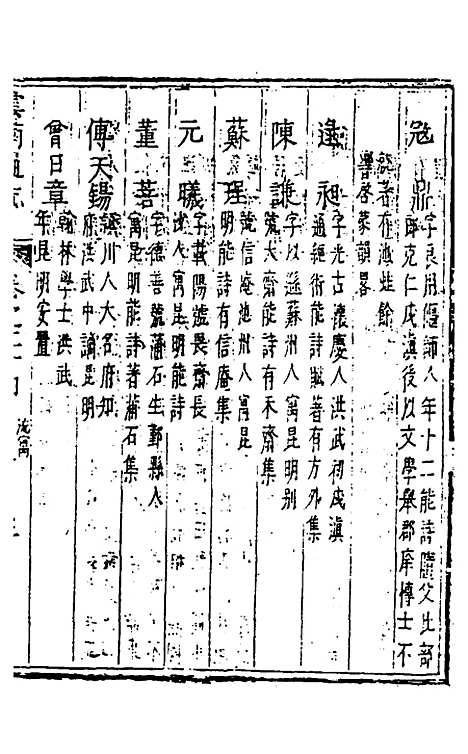 鼎字良用偃師人年十二能詩隨父出部
郎克仁戍滇後以文學舉郡庠博士不
著有池蛙餘
響啓蒙韻畧
逯昶字光古懷慶人洪武初戍滇
通經術能詩賦著有方外集
陳謙字以遜蘇州人寓昆明别
號大齋能詩有禾齋集
蘇珵號信庵池州人寓昆
明能詩有信庵集
元曦字載陽號畏齋長
沙人寓昆明能詩
董菩字德善號藩石生鄞縣人
寓昆明能詩著藩石集
傅天錫川人大名府知
府洪武中謫昆明
曾日章翰林學士洪武
年昆明安置
雲南通志
卷十四
流寓